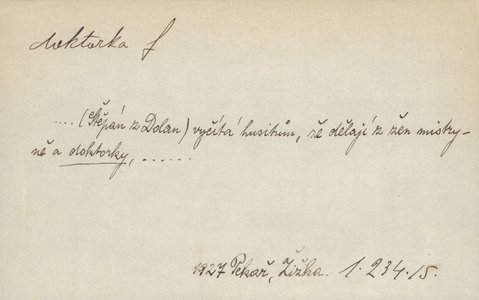 doktorka f
.... (Štěpán z Dolan) vyčítá husitům, že dělají z žen mistry-
ně a doktorky, ......
1927 Pekař, Žižka. 1. 234.15.